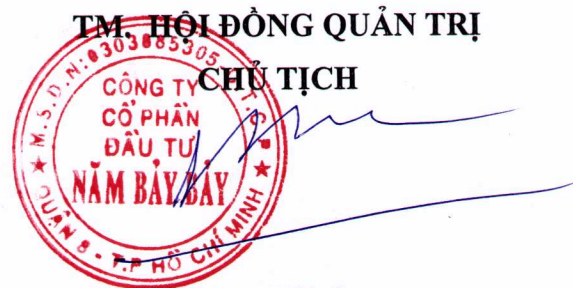 TM. HỘI ĐỒNG QUẢN TRỊ
CHỦ TỊCH
M.S.D.N: 0303885305 - C.T.C.P
CÔNG TY
CỔ PHẦN
ĐẦU TƯ
NĂM BẢY BẢY
QUẬN 8 - T.P HỒ CHÍ MINH